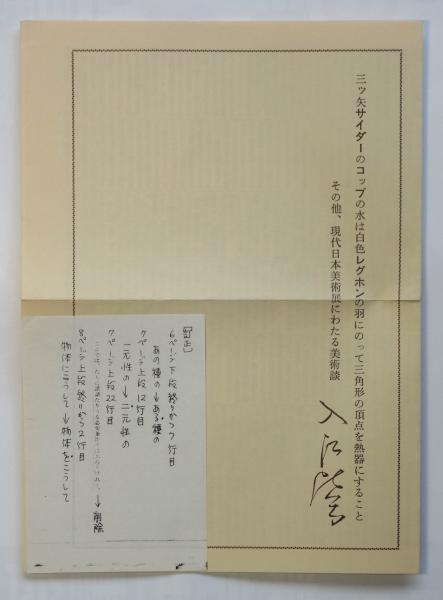 三ッ矢サイダーのコップの水は白色レグホンの羽にのって三角形の頂点を熱器にすること
その他、現代日本美術展にわたる美術談
[訂正]
6ページ下段終りから7行目
あの種の→ある種の
7ページ上段12行目
一元性の→二元性の
7ページ上段22行目
→削除
8ページ上段終りから2行目
物体にこうして→物体をこうして